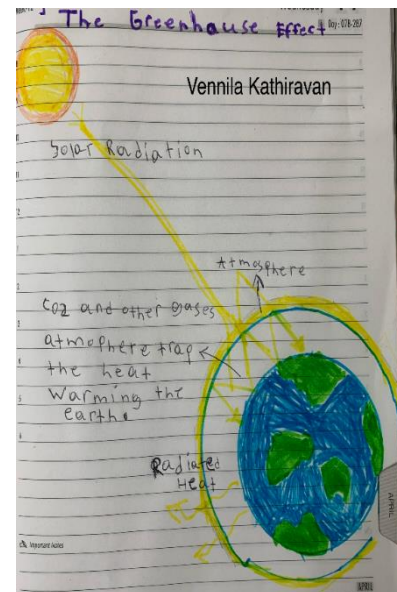 The Greenhouse Effect
Day: 078-287
Vennila Kathiravan
Solar Radiation
Atmosphere
CO2 and other gases
atmophere trap
the heat
Warming the
earth.
Radiated
Heat
APRIL
Important Notes
APRIL